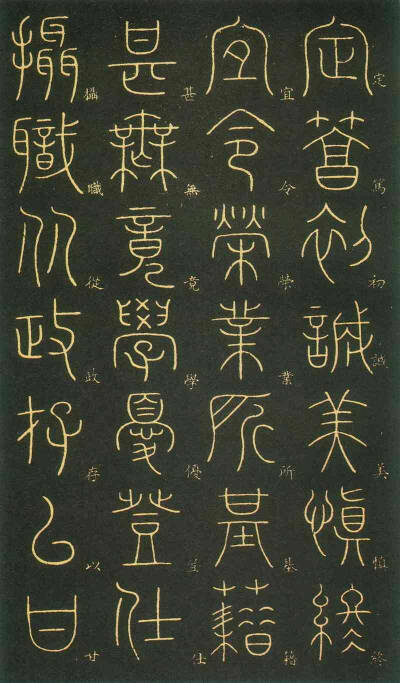 定篤初誠美慎終
定篤初誠美慎終
宜令榮業所基籍
宜令榮業所基籍
甚無竟學優登仕
甚無竟學優登仕
攝職從政存以甘
攝職從政存以甘